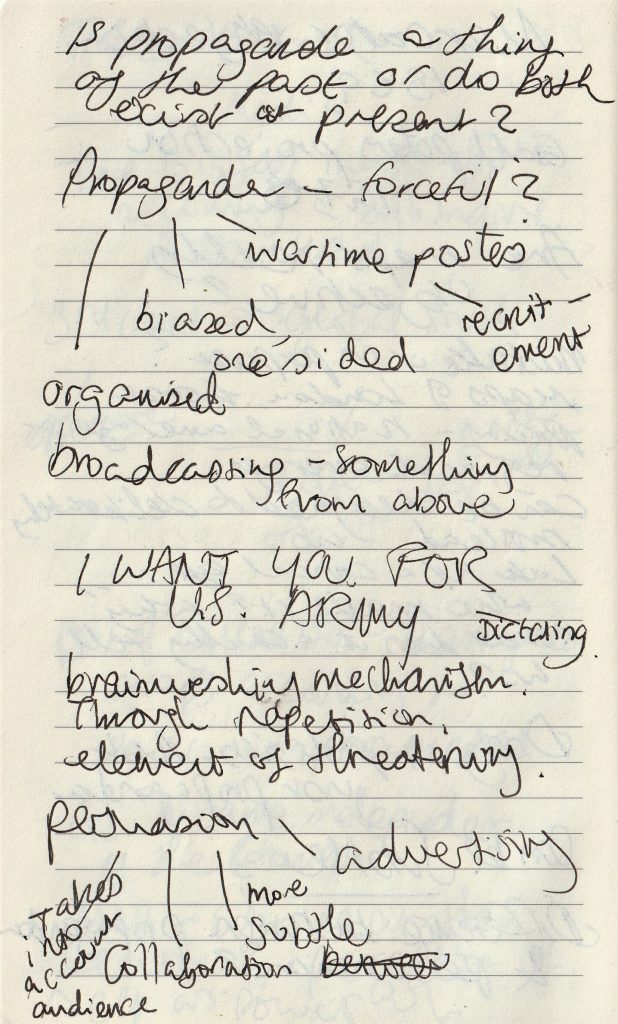 Is propaganda a thing
of the past or do both
exist at present?
Propaganda - forceful?
wartime posters
biased,
one sided
recruit-
ement
organised
broadcasting - something
from above
I WANT YOU FOR
U.S. ARMY
Dictating.
brainwashing mechanism.
Through repetition,
element of threatening.
persuasion
advertising
Takes
into
account
audience
more
subtle
Collaboration between